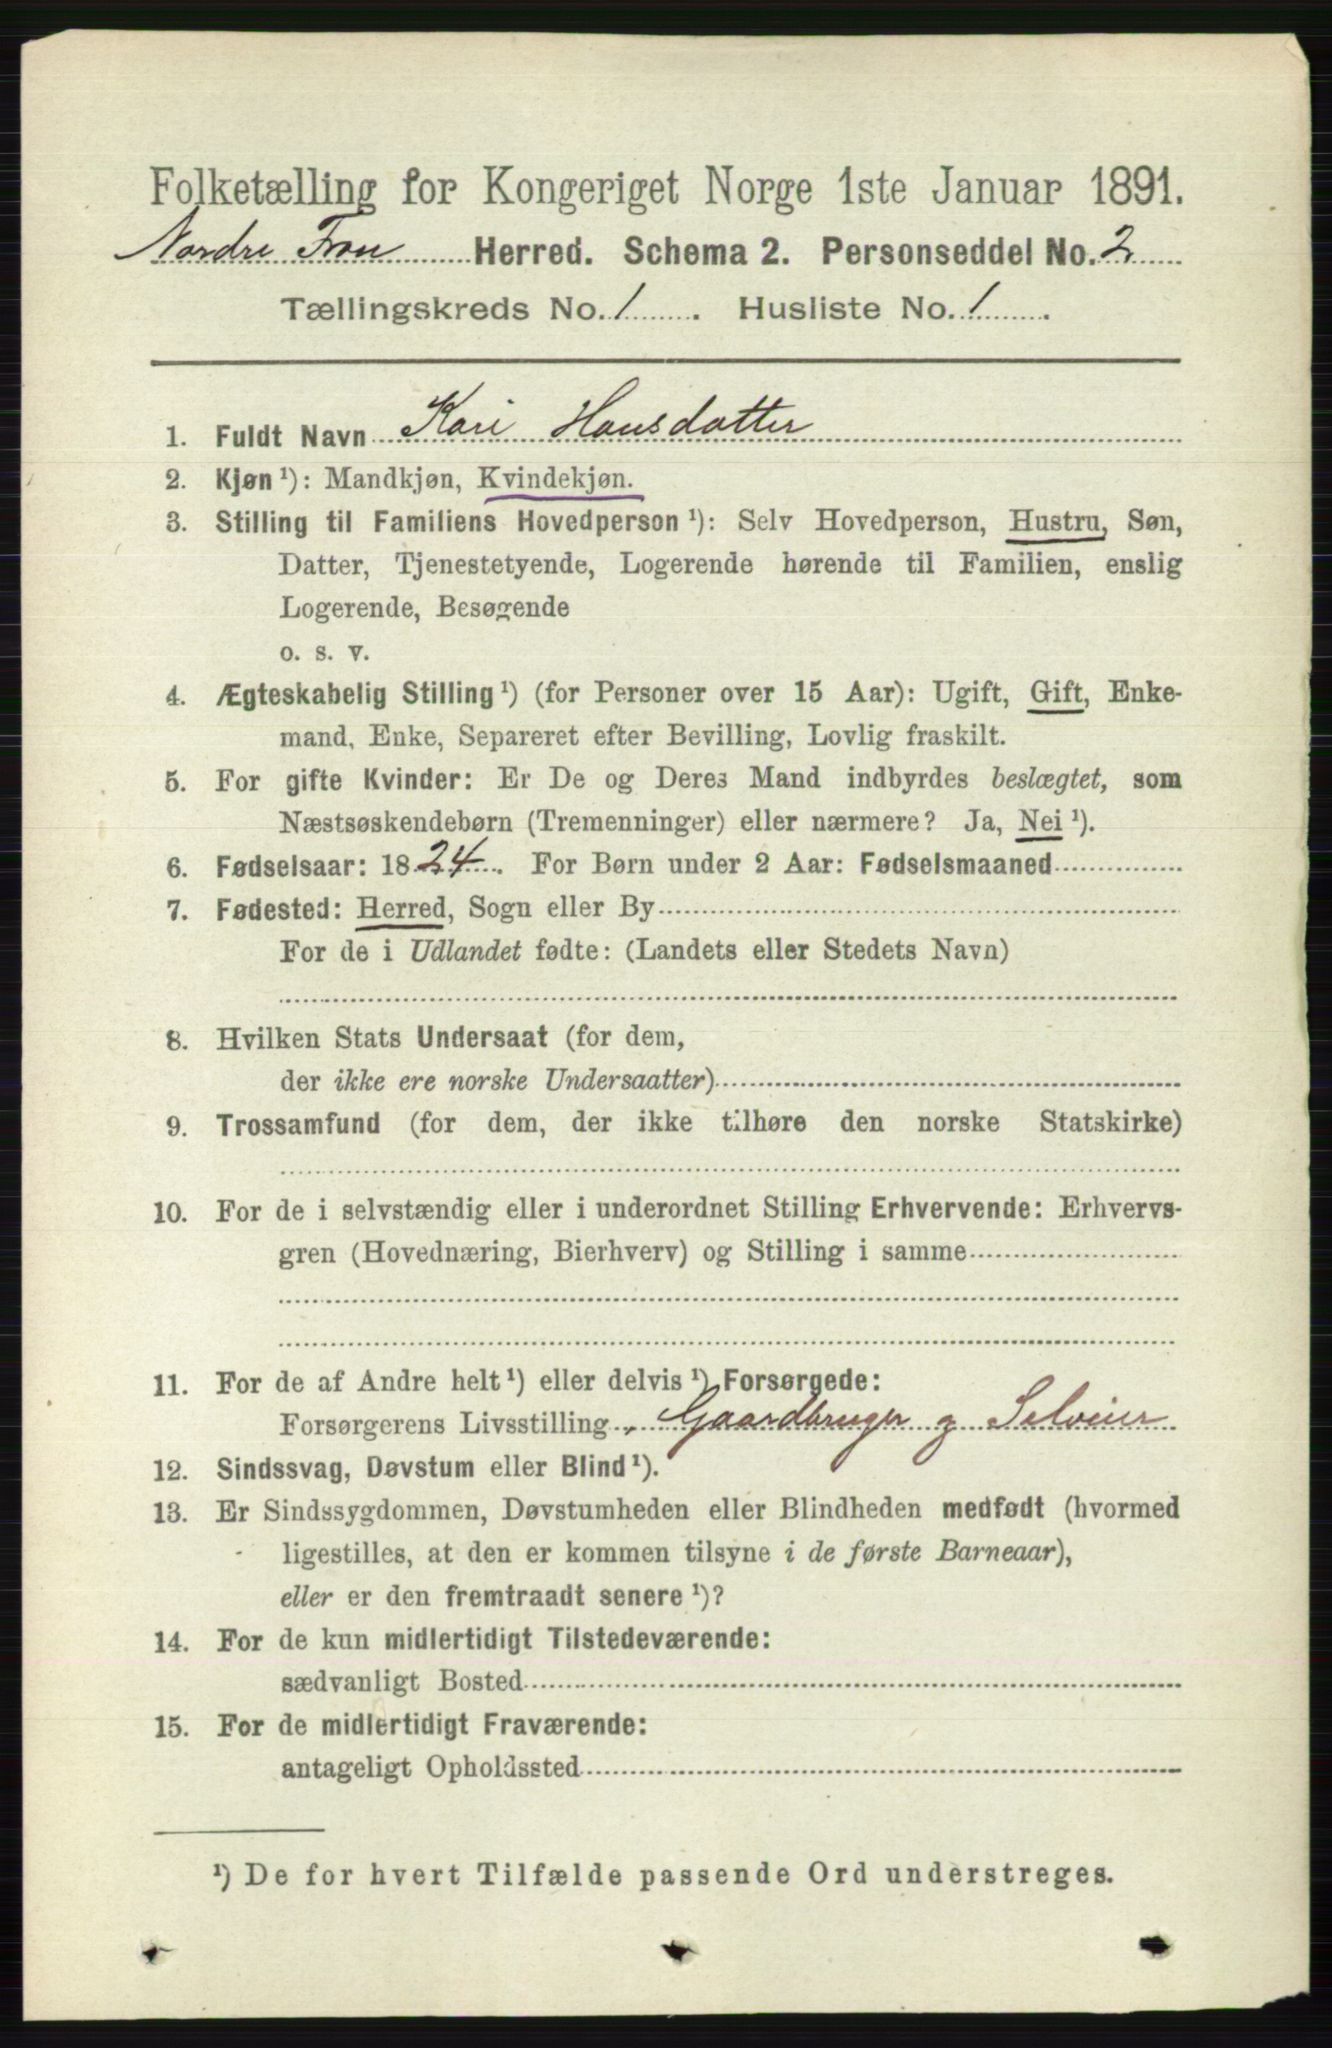 Folketælling for Kongeriget Norge 1ste Januar 1891.
Nordre Fron Herred. Schema 2. Personseddel No. 2
Tællingskreds No. 1. Husliste No. 1.
1. Fuldt Navn Kari Hansdatter
2. Kjøn ¹): Mandkjøn, Kvindekjøn.
3. Stilling til Familiens Hovedperson ¹): Selv Hovedperson, Hustru, Søn,
Datter, Tjenestetyende, Logerende hørende til Familien, enslig
Logerende, Besøgende
o. s. v.
4. Ægteskabelig Stilling ¹) (for Personer over 15 Aar): Ugift, Gift, Enke-
mand, Enke, Separeret efter Bevilling, Lovlig fraskilt.
5. For gifte Kvinder: Er De og Deres Mand indbyrdes beslægtet, som
Næstsøskendebørn (Tremenninger) eller nærmere? Ja, Nei ¹).
6. Fødselsaar: 1824. For Børn under 2 Aar: Fødselsmaaned
7. Fødested: Herred, Sogn eller By
For de i Udlandet fødte: (Landets eller Stedets Navn)
8. Hvilken Stats Undersaat (for dem,
der ikke ere norske Undersaatter)
9. Trossamfund (for dem, der ikke tilhøre den norske Statskirke)
10. For de i selvstændig eller i underordnet Stilling Erhvervende: Erhvervs-
gren (Hovednæring, Bierhverv) og Stilling i samme
11. For de af Andre helt ¹) eller delvis ¹) Forsørgede:
Forsørgerens Livsstilling, Gaardbruger og Selveier
12. Sindssvag, Døvstum eller Blind ¹).
13. Er Sindssygdommen, Døvstumheden eller Blindheden medfødt (hvormed
ligestilles, at den er kommen tilsyne i de første Barneaar),
eller er den fremtraadt senere ¹)?
14. For de kun midlertidigt Tilstedeværende:
sædvanligt Bosted
15. For de midlertidigt Fraværende:
antageligt Opholdssted
¹) De for hvert Tilfælde passende Ord understreges.